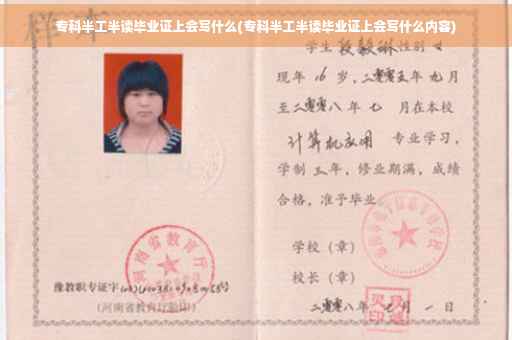 专科半工半读毕业证上会写什么(专科半工半读毕业证上会写什么内容)
样本
学生 性别 女
现年 16 岁,二零零五年 九月
至二零零八年 七 月在本校
计算机应用 专业学习,
学制 三 年,修业期满,成绩
合格,准予毕业。
学校(章)
校长(章)
二零零八年 七 月 一 日
河南省教育厅
豫教职专证字
(河南省教育厅验印)